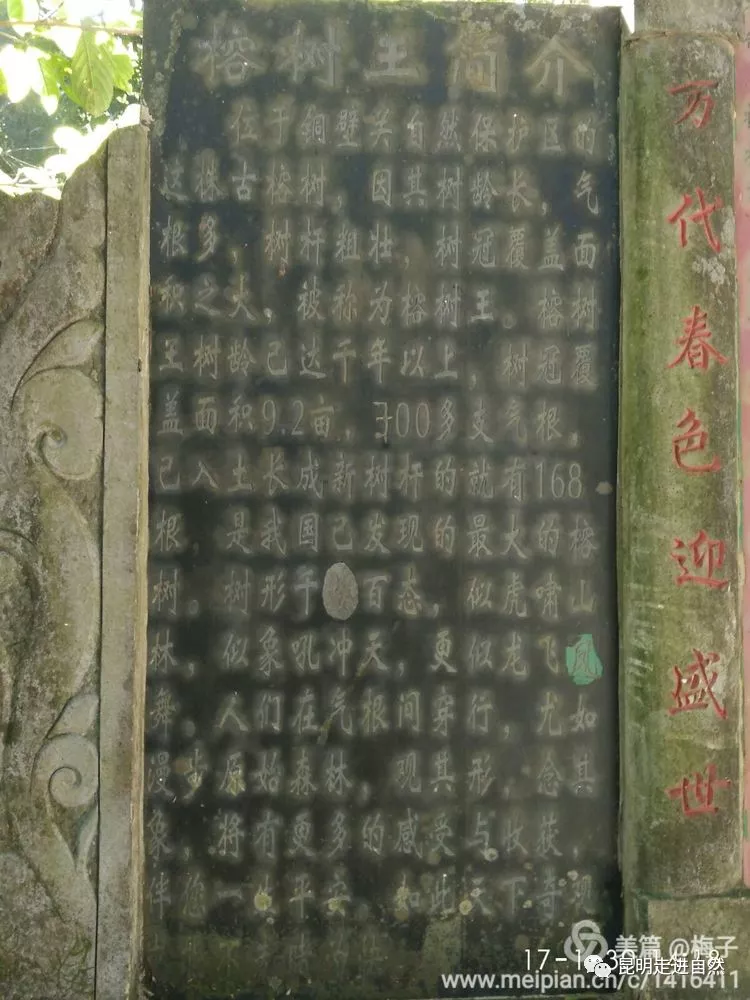 榕树王简介
位于铜壁关自然保护区的
这棵古榕树，因其树龄长，气
根多，树杆粗壮，树冠覆盖面
积之大，被称为榕树王。榕树
王树龄已达千年以上，树冠覆
盖面积9.2亩，300多支气根，
已入土长成新树杆的就有168
根，是我国已发现的最大的榕
树。树形千姿百态，似虎啸山
林，似象吼冲天，更似龙飞凤
舞。人们在气根间穿行，尤如
漫步原始森林，观其形，念其
象，将有更多的感受与收获，
伴您一生平安。如此天下奇观
万代春色迎盛世
17-1
美篇 @梅子
昆明走进自然
www.meipian.cn/c/1416411